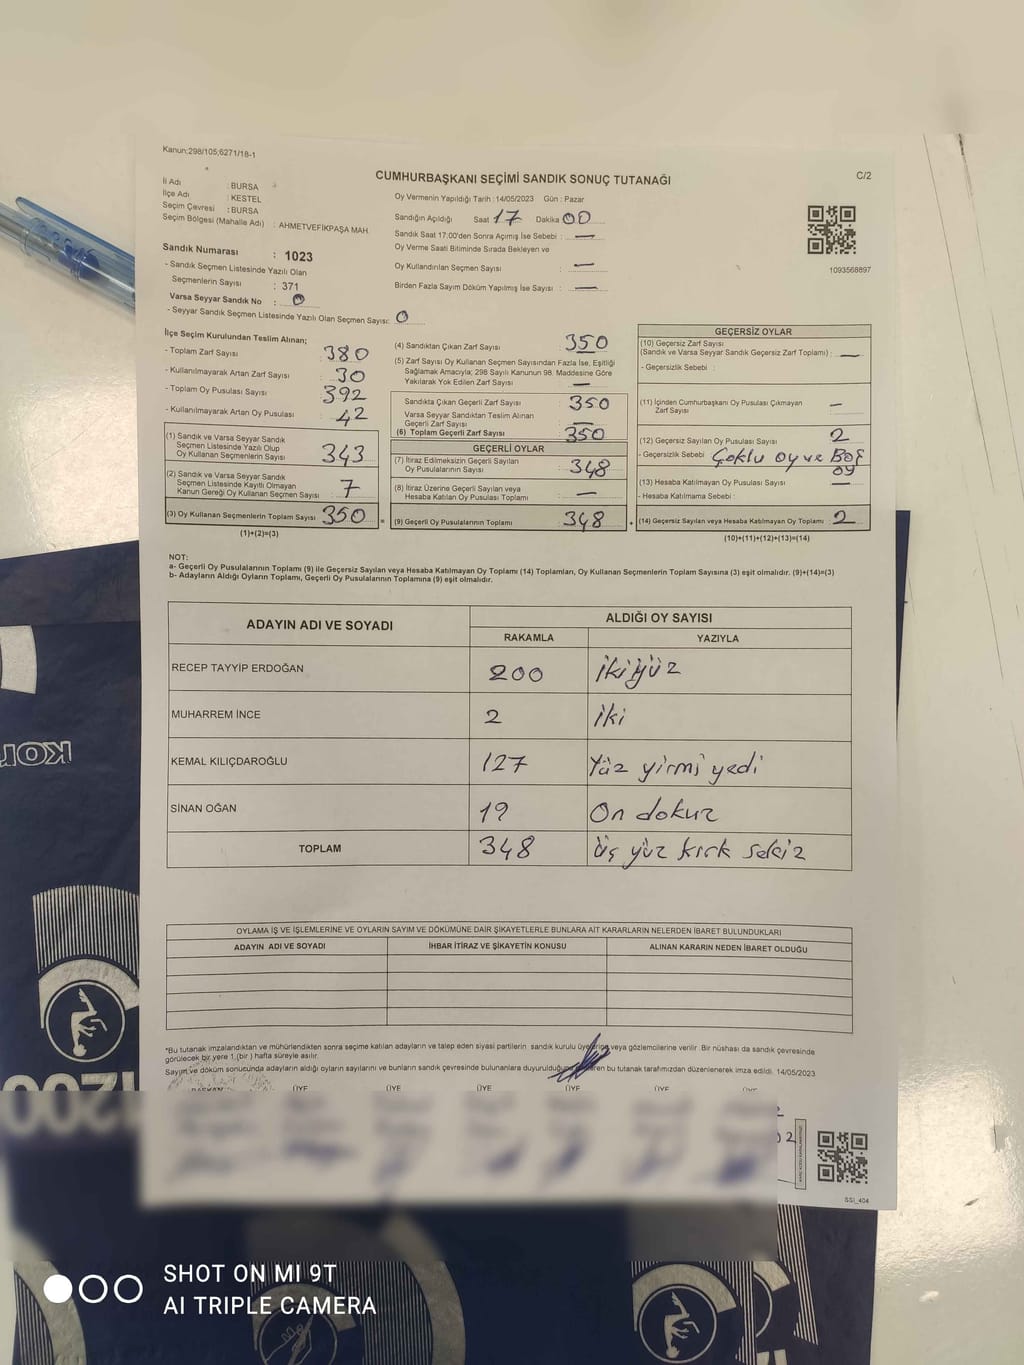 Kanun:298/105;6271/18-1
CUMHURBAŞKANI SEÇİMİ SANDIK SONUÇ TUTANAĞI
C/2
İl Adı : BURSA
İlçe Adı : KESTEL
Seçim Çevresi : BURSA
Seçim Bölgesi (Mahalle Adı) : AHMETVEFİKPAŞA MAH.
Sandık Numarası : 1023
- Sandık Seçmen Listesinde Yazılı Olan
Seçmenlerin Sayısı : 371
Varsa Seyyar Sandık No : 0
- Seyyar Sandık Seçmen Listesinde Yazılı Olan Seçmen Sayısı: 0
Oy Vermenin Yapıldığı Tarih : 14/05/2023 Gün : Pazar
Sandığın Açıldığı Saat 17 Dakika 00
Sandık Saat 17:00'den Sonra Açımış İse Sebebi : —
Oy Verme Saati Bitiminde Sırada Bekleyen ve
Oy Kullandırılan Seçmen Sayısı : —
Birden Fazla Sayım Döküm Yapılmış İse Sayısı : —
1093568897
İlçe Seçim Kurulundan Teslim Alınan;
- Toplam Zarf Sayısı : 380
- Kullanılmayarak Artan Zarf Sayısı : 30
- Toplam Oy Pusulası Sayısı : 392
- Kullanılmayarak Artan Oy Pusulası : 42
(1) Sandık ve Varsa Seyyar Sandık
Seçmen Listesinde Yazılı Olup
Oy Kullanan Seçmenlerin Sayısı : 343
(2) Sandık ve Varsa Seyyar Sandık
Seçmen Listesinde Kayıtlı Olmayan
Kanun Gereği Oy Kullanan Seçmen Sayısı : 7
(3) Oy Kullanan Seçmenlerin Toplam Sayısı : 350
(1)+(2)=(3)
=
(4) Sandıktan Çıkan Zarf Sayısı : 350
(5) Zarf Sayısı Oy Kullanan Seçmen Sayısından Fazla İse, Eşitliği
Sağlamak Amacıyla; 298 Sayılı Kanunun 98. Maddesine Göre
Yakılarak Yok Edilen Zarf Sayısı : —
Sandıkta Çıkan Geçerli Zarf Sayısı : 350
Varsa Seyyar Sandıktan Teslim Alınan
Geçerli Zarf Sayısı : —
(6) Toplam Geçerli Zarf Sayısı : 350
GEÇERLİ OYLAR
(7) İtiraz Edilmeksizin Geçerli Sayılan
Oy Pusulalarının Sayısı : 348
(8) İtiraz Üzerine Geçerli Sayılan veya
Hesaba Katılan Oy Pusulası Toplamı : —
(9) Geçerli Oy Pusulalarının Toplamı : 348
+
GEÇERSİZ OYLAR
(10) Geçersiz Zarf Sayısı
(Sandık ve Varsa Seyyar Sandık Geçersiz Zarf Toplamı) : —
- Geçersizlik Sebebi :
(11) İçinden Cumhurbaşkanı Oy Pusulası Çıkmayan
Zarf Sayısı : —
(12) Geçersiz Sayılan Oy Pusulası Sayısı : 2
- Geçersizlik Sebebi : Çoklu oy ve Boş
oy
(13) Hesaba Katılmayan Oy Pusulası Sayısı : —
- Hesaba Katılmama Sebebi :
(14) Geçersiz Sayılan veya Hesaba Katılmayan Oy Toplamı : 2
(10)+(11)+(12)+(13)=(14)
NOT:
a- Geçerli Oy Pusulalarının Toplamı (9) ile Geçersiz Sayılan veya Hesaba Katılmayan Oy Toplamı (14) Toplamları, Oy Kullanan Seçmenlerin Toplam Sayısına (3) eşit olmalıdır. (9)+(14)=(3)
b- Adayların Aldığı Oyların Toplamı, Geçerli Oy Pusulalarının Toplamına (9) eşit olmalıdır.
ADAYIN ADI VE SOYADI
ALDIĞI OY SAYISI
RAKAMLA YAZIYLA
RECEP TAYYİP ERDOĞAN 200 İkiyüz
MUHARREM İNCE 2 İki
KEMAL KILIÇDAROĞLU 127 Yüz yirmi yedi
SİNAN OĞAN 19 On dokuz
TOPLAM 348 Üç yüz kırk sekiz
OYLAMA İŞ VE İŞLEMLERİNE VE OYLARIN SAYIM VE DÖKÜMÜNE DAİR ŞİKAYETLERLE BUNLARA AİT KARARLARIN NELERDEN İBARET BULUNDUKLARI
ADAYIN ADI VE SOYADI İHBAR İTİRAZ VE ŞİKAYETİN KONUSU ALINAN KARARIN NEDEN İBARET OLDUĞU
*Bu tutanak imzalandıktan ve mühürlendikten sonra seçime katılan adayların ve talep eden siyasi partilerin sandık kurulu veya gözlemcilerine verilir. Bir nüshası da sandık çevresinde
görülecek bir yere 1 (bir) hafta süreyle asılır.
Sayım ve döküm sonucunda adayların aldığı oyların sayılarını ve bunların sandık çevresinde bulunanlara bu tutanak tarafımızdan düzenlenerek imza edildi. 14/05/2023
BAŞKAN ÜYE ÜYE ÜYE ÜYE ÜYE ÜYE
SSİ_404
KOR
1200
SHOT ON MI 9T
AI TRIPLE CAMERA